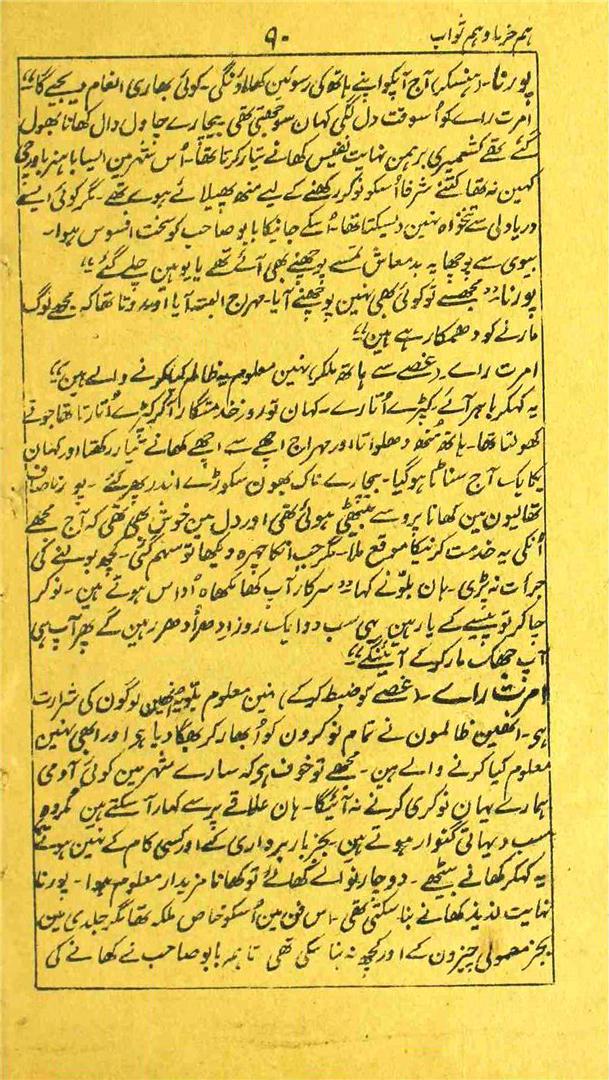 ہم خرما و ہم ثواب
۹۰
پورنا۔ (ہنسکر) آج آپکو اپنے ہاتھ کی رسوئین کھلاؤنگی۔ کوئی بھاری انعام دیجیے گا"
امرت راے کو اُسوقت دل لگی کہان سوجھتی تھی بیچارے چاول دال کھانا بھول
گئے تھے کشمیری برہمن نہایت نفیس کھانے تیار کرتا تھا۔ اُس شہر مین ایسا باہنر باورچی
کہین نہ تھا کتنے شرفا اُسکو نوکر رکھنے کے لیے منھ پھیلائے ہوے تھے۔ مگر کوئی ایسے
دریا دلی سے تنخواہ نہین دیسکتا تھا۔ اُسکے جانیکا بابو صاحب کو سخت افسوس ہوا۔
بیوی سے پوچھا یہ بدمعاش تمسے پوچھنے بھی آئے تھے یا یوہین چلے گئے"
پورنا۔ "مجھسے تو کوئی بھی نہین پوچھنے آیا۔ مہراج البتہ آیا اور روتا تھا کہ مجھے لوگ
مارنے کو دھمکا رہے ہین"
امرت راے۔ (غصے سے ہاتھ ملکر) نہین معلوم یہ ظالم کیا کرنے والے ہین"
یہ کہکر باہر آئے۔ کپڑے اُتارے۔ کہان تو روز خدمتگار آکر کپڑے اُتارتا تھا جوتے
کھولتا تھا۔ ہاتھ منھ دھلواتا اور مہراج اچھے سے اچھے کھانے تیار رکھتا اور کہان
یکایک آج سناٹا ہوگیا۔ بیچارے ناک بھون سکوڑے اندر پھر گئے۔ پورنا صاف
تھالیون مین کھانا پروسے بیٹھی ہوئی تھی اور دل مین خوش بھی تھی کہ آج مجھے
اُنکی یہ خدمت کرنیکا موقع ملا۔ مگر جب انکا چہرہ دیکھا تو سہم گئی۔ کچھ بولنے کی
جرأت نہ پڑی۔ ہان بلّو نے کہا "سرکار آپ کھامکھاہ اُداس ہوتے ہین۔ نوکر
چاکر تو پیسے کے یار ہین یہی سب دو ایک روز ادھر اُدھر رہین گے پھر آپ ہی
آپ جھک مار کے آئینگے"
امرت راے۔ (غصے کو ضبط کرکے) نہین معلوم بلّو یہ انھین لوگون کی شرارت
ہی۔ انھین ظالمون نے تمام نوکرون کو اُبھار کر بھگا دیا ہی اور ابھی نہین
معلوم کیا کرنے والے ہین۔ مجھے تو خوف ہی کہ سارے شہر مین کوئی آدمی
ہمارے یہان نوکری کرنے نہ آئیگا۔ ہان علاقے پر سے کہار آسکتے ہین مگر وہ
سب دیہاتی گنوار ہوتے ہین۔ بجز باربرداری کے اور کسی کام کے نہین ہوتے
یہ کہکر کھانے بیٹھے۔ دو چار نوالے کھائے تو کھانا مزیدار معلوم ہوا۔ پورنا
نہایت لذیذ کھانے بنا سکتی تھی۔ اس فن مین اُسکو خاص ملکہ تھا مگر جلدی مین
بجز معمولی چیزون کے اور کچھ نہ بنا سکی تھی تاہم بابو صاحب نے کھانے کی